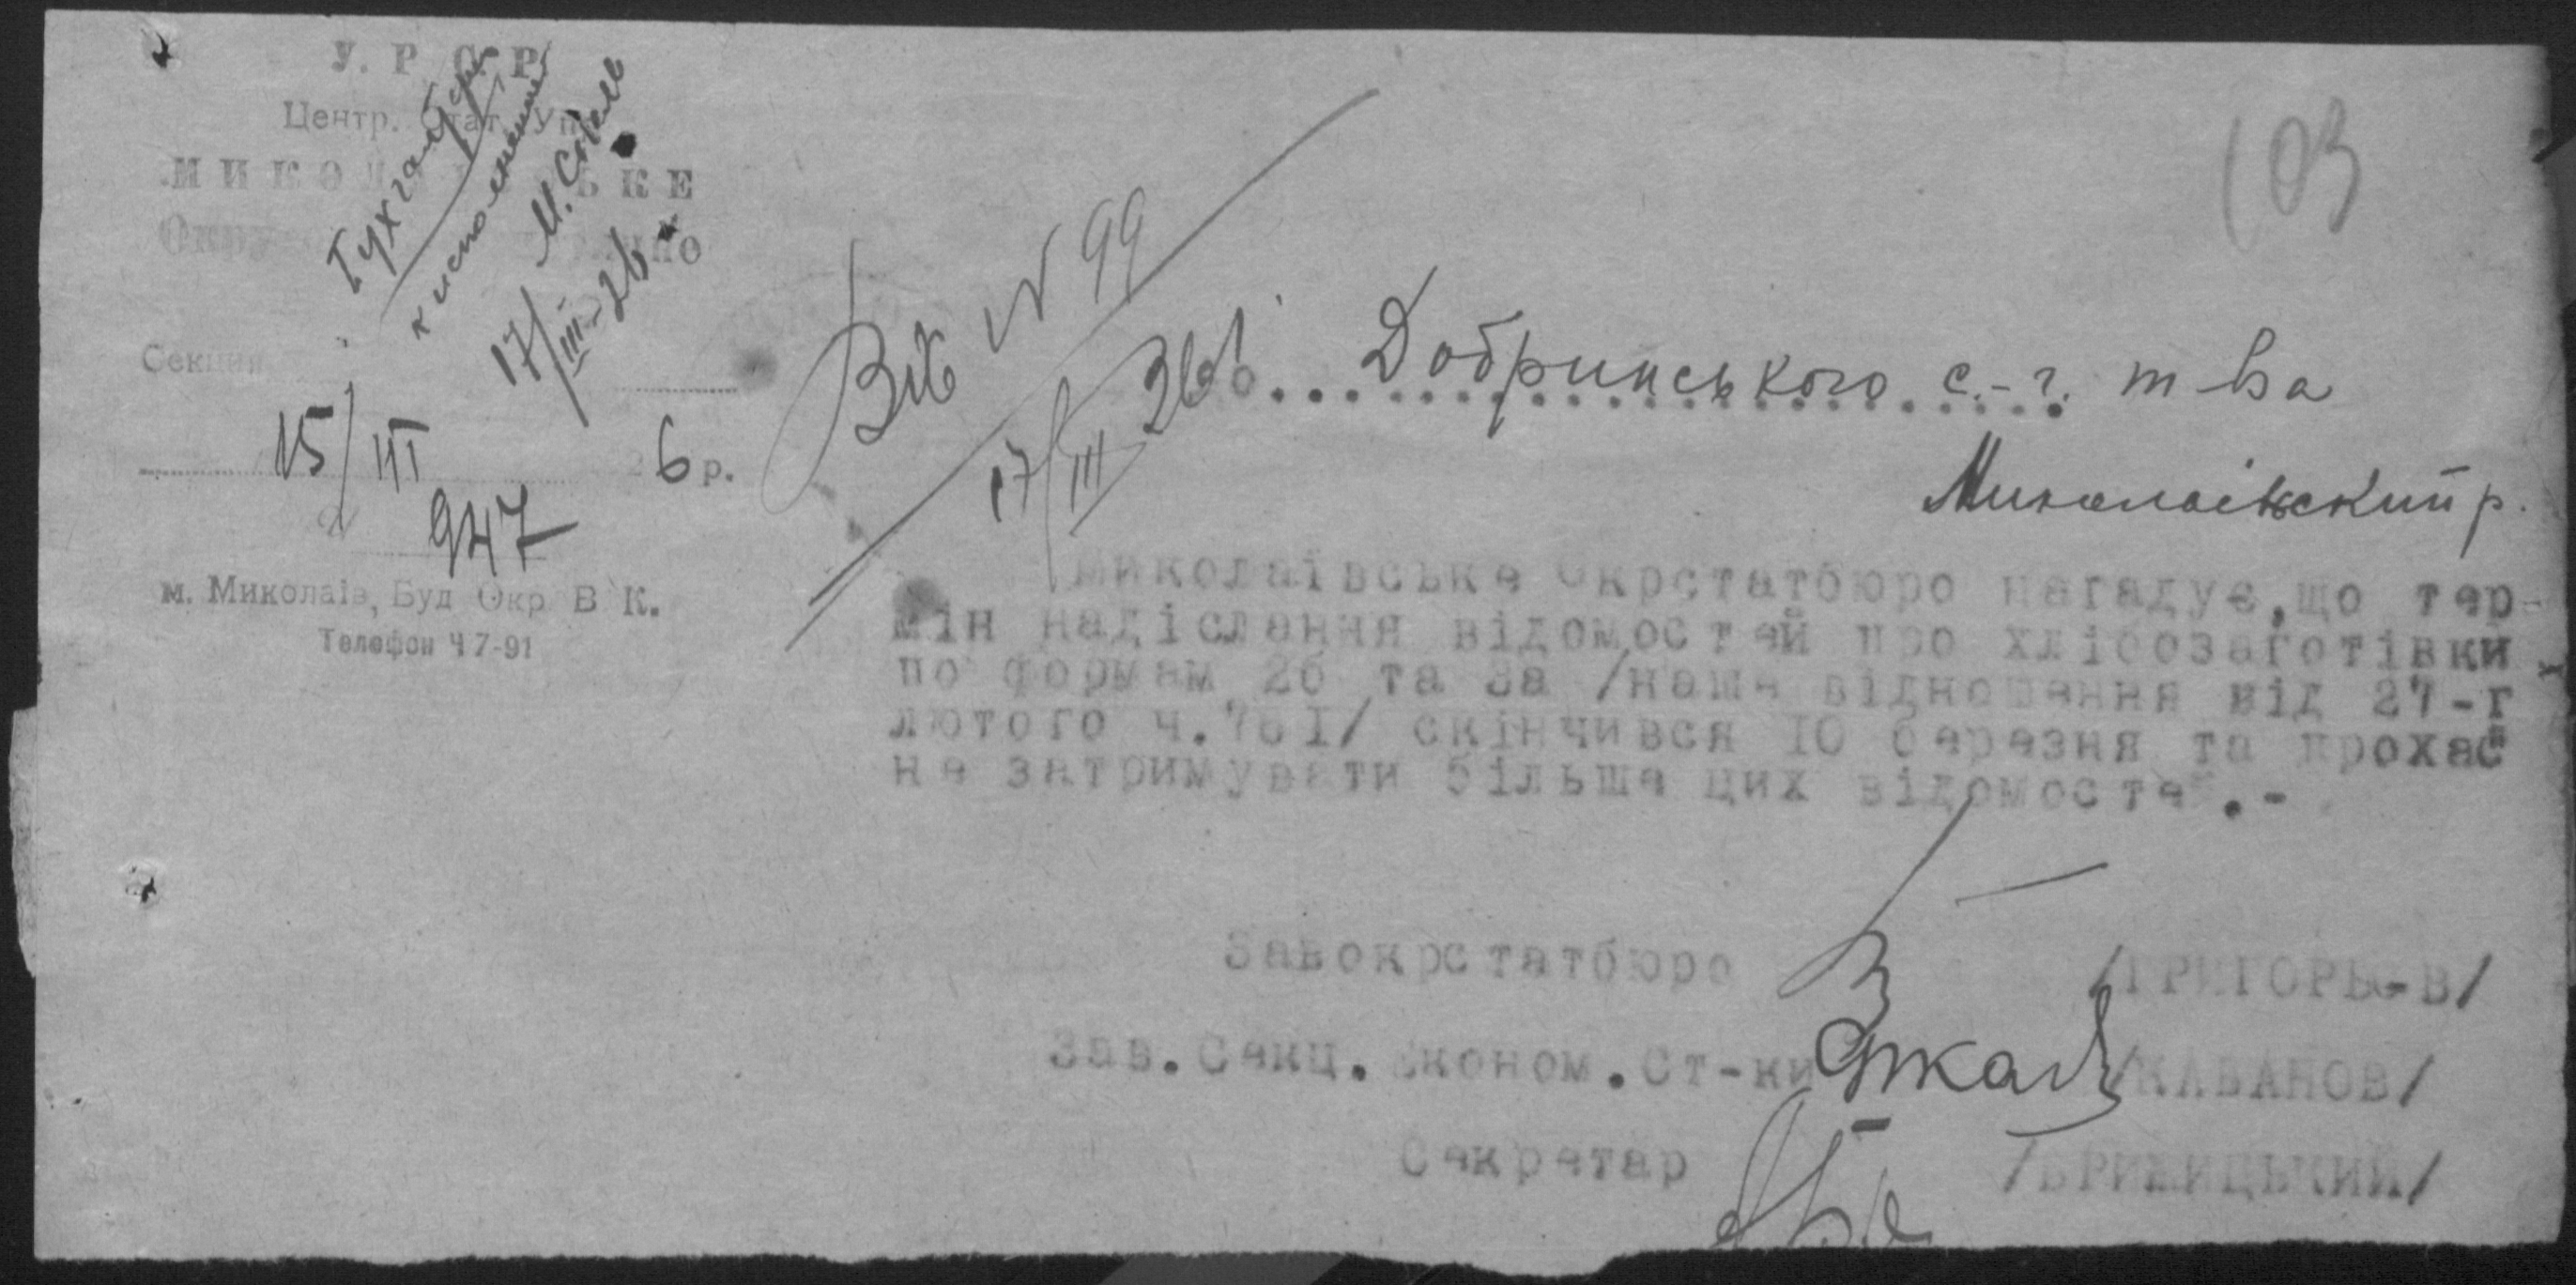 У. Р. С. Р.
Центр. Стат. Упр.
МИКОЛАЇВСЬКЕ
Окру
Бухгалтеру
к исполнению
М. Собель
17/III-26
Секция
15/III 26 р.
947
м. Миколаів, Буд Окр В К.
Телефон Ч 7-91
103
Вх N 99
17/III 26
До Добринського с.-г. т-ва
Миколаівский р.
Миколаівське Окрстатбюро нагадує, що тер-
мін надіслання відомостей про хлібозаготівки
по формам 2б та 3а /наше відношення від 27-г
лютого ч.781/ скінчився 10 березня та прохає
не затримувати більше цих відомостей.-
Завокрстатбюро /ГРИГОРЬЄВ/
Зав.Секц.Економ.Ст-ки /КАБАНОВ/
Секретар